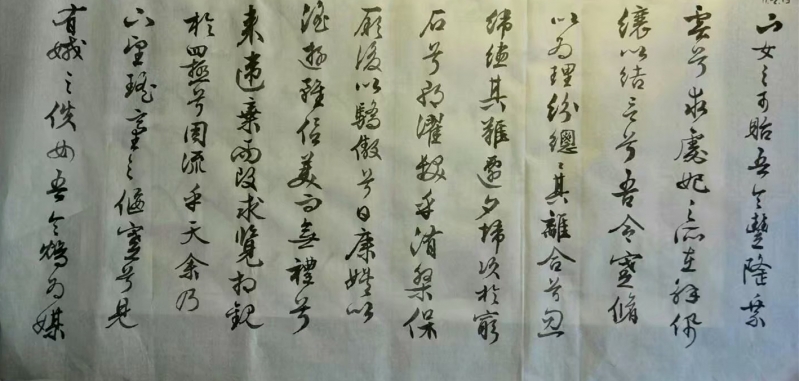 下女之可貽吾令豐隆乘
雲兮求處妃之所在解佩
纕以結言兮吾令蹇脩
以為理紛總〻其離合兮忽
緯繣其難遷夕歸次於窮
石兮朝濯髮乎洧槃保
厥美以驕傲兮日康娛以
淫遊雖信美而無禮兮
來違棄而改求覽相觀
於四極兮周流乎天余乃
下望瑤臺之偃蹇兮見
有娀之佚女吾令鴆為媒